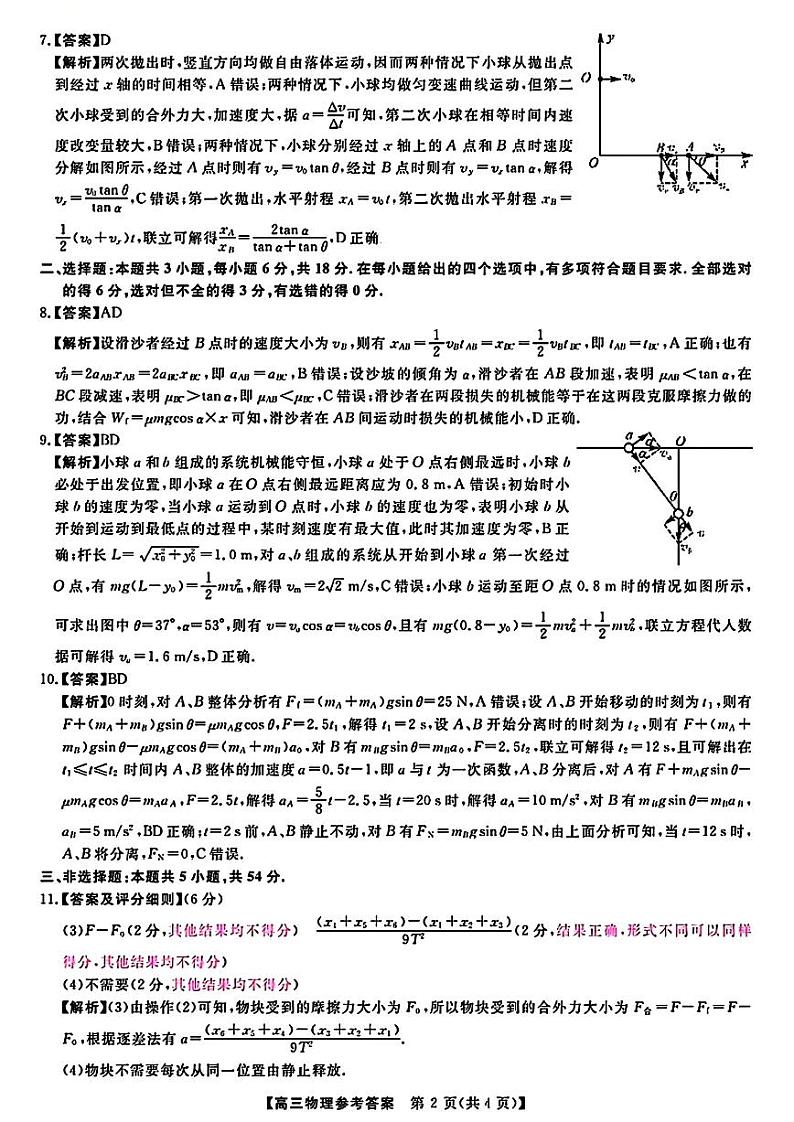 7.【答案】D
【解析】两次抛出时,竖直方向均做自由落体运动,因而两种情况下小球从抛出点
到经过 x 轴的时间相等,A 错误;两种情况下,小球均做匀变速曲线运动,但第二
次小球受到的合外力大,加速度大,据 a=Δv/Δt可知,第二次小球在相等时间内速
度改变量较大,B错误;两种情况下,小球分别经过 x 轴上的 A 点和 B 点时速度
分解如图所示,经过 A 点时则有 vy=v0tan θ,经过 B 点时则有 vy=vxtan α,解得
vx=v0tan θ/tan α,C 错误;第一次抛出,水平射程 xA=v0t,第二次抛出水平射程 xB=
1/2(v0+vx)t,联立可解得xA/xB=2tan α/(tan α+tan θ),D 正确.
y
O
v0
O
B
A
x
二、选择题:本题共 3 小题,每小题 6 分,共 18 分.在每小题给出的四个选项中,有多项符合题目要求.全部选对
的得 6 分,选对但不全的得 3 分,有选错的得 0 分.
8.【答案】AD
【解析】设滑沙者经过 B 点时的速度大小为 vB,则有 xAB=1/2vBtAB=xBC=1/2vBtBC,即 tAB=tBC,A 正确;也有
vB²=2aABxAB=2aBCxBC,即 aAB=aBC,B 错误;设沙坡的倾角为 α,滑沙者在 AB 段加速,表明 μAB<tan α,在
BC 段减速,表明 μBC>tan α,即 μAB<μBC,C 错误;滑沙者在两段损失的机械能等于在这两段克服摩擦力做的
功,结合 Wf=μmgcos α×x 可知,滑沙者在 AB 间运动时损失的机械能小,D 正确.
9.【答案】BD
【解析】小球 a 和 b 组成的系统机械能守恒,小球 a 处于 O 点右侧最远时,小球 b
必处于出发位置,即小球 a 在 O 点右侧最远距离应为 0.8 m,A 错误;初始时小
球 b 的速度为零,当小球 a 运动到 O 点时,小球 b 的速度也为零,表明小球 b 从
开始到运动到最低点的过程中,某时刻速度有最大值,此时其加速度为零,B 正
确;杆长 L=√(x0²+y0²)=1.0 m,对 a、b 组成的系统从开始到小球 a 第一次经过
O 点,有 mg(L-y0)=1/2mvm²,解得 vm=2√2 m/s,C 错误;小球 b 运动至距 O 点 0.8 m 时的情况如图所示,
可求出图中 θ=37°,α=53°,则有 v=vacos α=vbcos θ,且有 mg(0.8-y0)=1/2mva²+1/2mvb²,联立方程代入数
据可解得 va=1.6 m/s,D 正确.
a
α
va
O
v
θ
b
v
vb
10.【答案】BD
【解析】0 时刻,对 A、B 整体分析有 Ff=(mA+mB)gsin θ=25 N,A 错误;设 A、B 开始移动的时刻为 t1,则有
F+(mA+mB)gsin θ=μmAgcos θ,F=2.5t1,解得 t1=2 s,设 A、B 开始分离时的时刻为 t2,则有 F+(mA+
mB)gsin θ-μmAgcos θ=(mA+mB)a0,对 B 有 mBgsin θ=mBa0,F=2.5t2,联立可解得 t2=12 s,且可解出在
t1≤t≤t2 时间内 A、B 整体的加速度 a=0.5t-1,即 a 与 t 为一次函数,A、B 分离后,对 A 有 F+mAgsin θ-
μmAgcos θ=mAaA,F=2.5t,解得 aA=5/8t-2.5,当 t=20 s 时,解得 aA=10 m/s²,对 B 有 mBgsin θ=mBaB,
aB=5 m/s²,BD 正确;t=2 s 前,A、B 静止不动,对 B 有 FN=mBgsin θ=5 N,由上面分析可知,当 t=12 s 时,
A、B 将分离,FN=0,C 错误.
三、非选择题:本题共 5 小题,共 54 分.
11.【答案及评分细则】(6 分)
(3)F-F0(2 分,其他结果均不得分) (x4+x5+x6)-(x1+x2+x3)/9T²(2 分,结果正确,形式不同可以同样
得分,其他结果均不得分)
(4)不需要(2 分,其他结果均不得分)
【解析】(3)由操作(2)可知,物块受到的摩擦力大小为 F0,所以物块受到的合外力大小为 F合=F-Ff=F-
F0,根据逐差法有 a=(x6+x5+x4)-(x3+x2+x1)/9T².
(4)物块不需要每次从同一位置由静止释放.
【高三物理参考答案 第 2 页(共 4 页)】